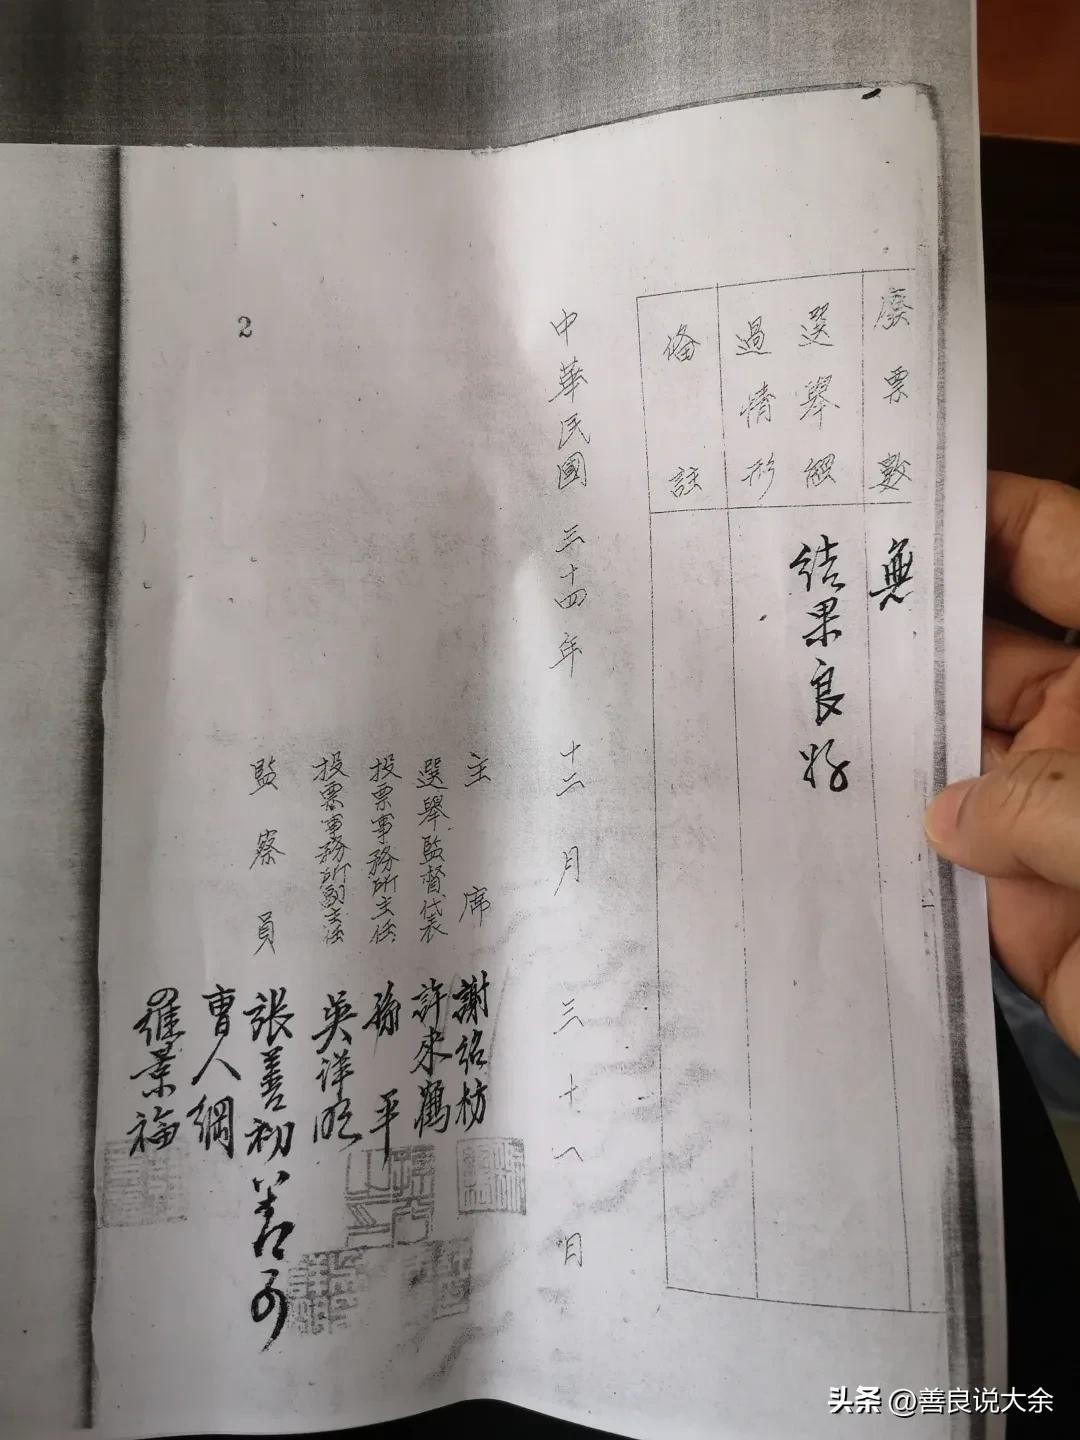 廢票數　無
選舉經
過情形　結果良好
備註
中華民國三十四年十二月三十八日
主席　謝紹枋
選舉監督代表　許來鶴
投票事務所主任　孫平
投票事務所副主任　吳洋
監察員　張善初
曹人綱
羅景福
2
头条 @善良说大余